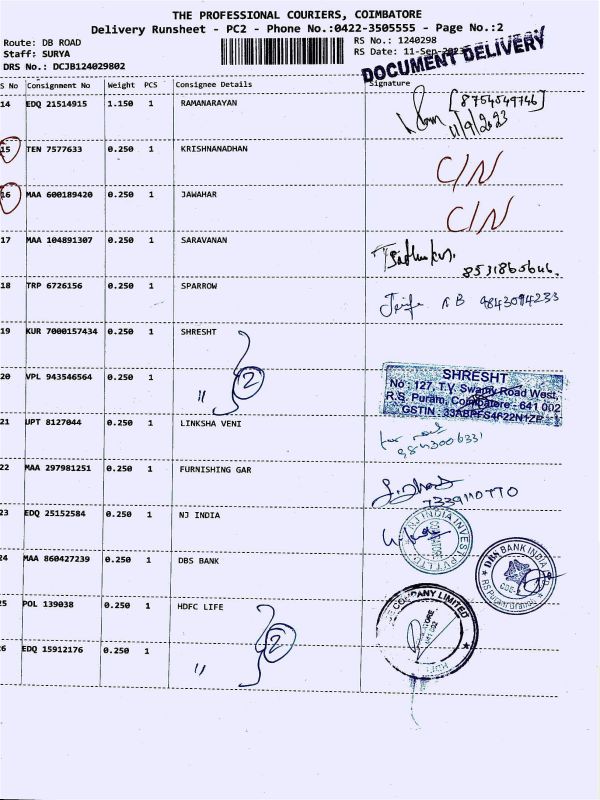 THE PROFESSIONAL COURIERS, COIMBATORE
Delivery Runsheet - PC2 - Phone No.:0422-3505555 - Page No.:2
Route: DB ROAD
RS No.: 1240298
Staff: SURYA
RS Date: 11-Sep-2023
DRS No.: DCJB124029802
DOCUMENT DELIVERY
S No Consignment No Weight PCS Consignee Details Signature
14 EDQ 21514915 1.150 1 RAMANARAYAN
[8754549746]
11/9/2023
15 TEN 7577633 0.250 1 KRISHNANADHAN C/N
16 MAA 600189420 0.250 1 JAWAHAR C/N
17 MAA 104891307 0.250 1 SARAVANAN
8531865646.
18 TRP 6726156 0.250 1 SPARROW 9843094233
19 KUR 7000157434 0.250 1 SHRESHT
20 VPL 943546564 0.250 1 " 2
SHRESHT
No : 127, T.V. Swamy Road West,
R.S. Puram, Coimbatore - 641 002
GSTIN : 33ABPFS4622N1ZP
21 UPT 8127044 0.250 1 LINKSHA VENI
9843006331
22 MAA 297981251 0.250 1 FURNISHING GAR
23 EDQ 25152584 0.250 1 NJ INDIA
NJ INDIA INVEST PVT LTD
24 MAA 860427239 0.250 1 DBS BANK
DBS BANK INDIA
RS Puram Branch
25 POL 139038 0.250 1 HDFC LIFE
COMPANY LIMITED
26 EDQ 15912176 0.250 1 " 2